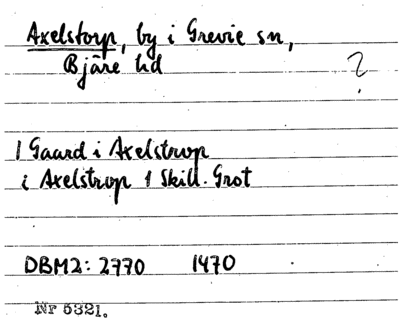 Axelstorp, by i Grevie sn,
Bjäre hd
?
1 Gaard i Axelstrup
i Axelstrup 1 Skill. Grot
DBM2: 2770 1470
Nr 5321.